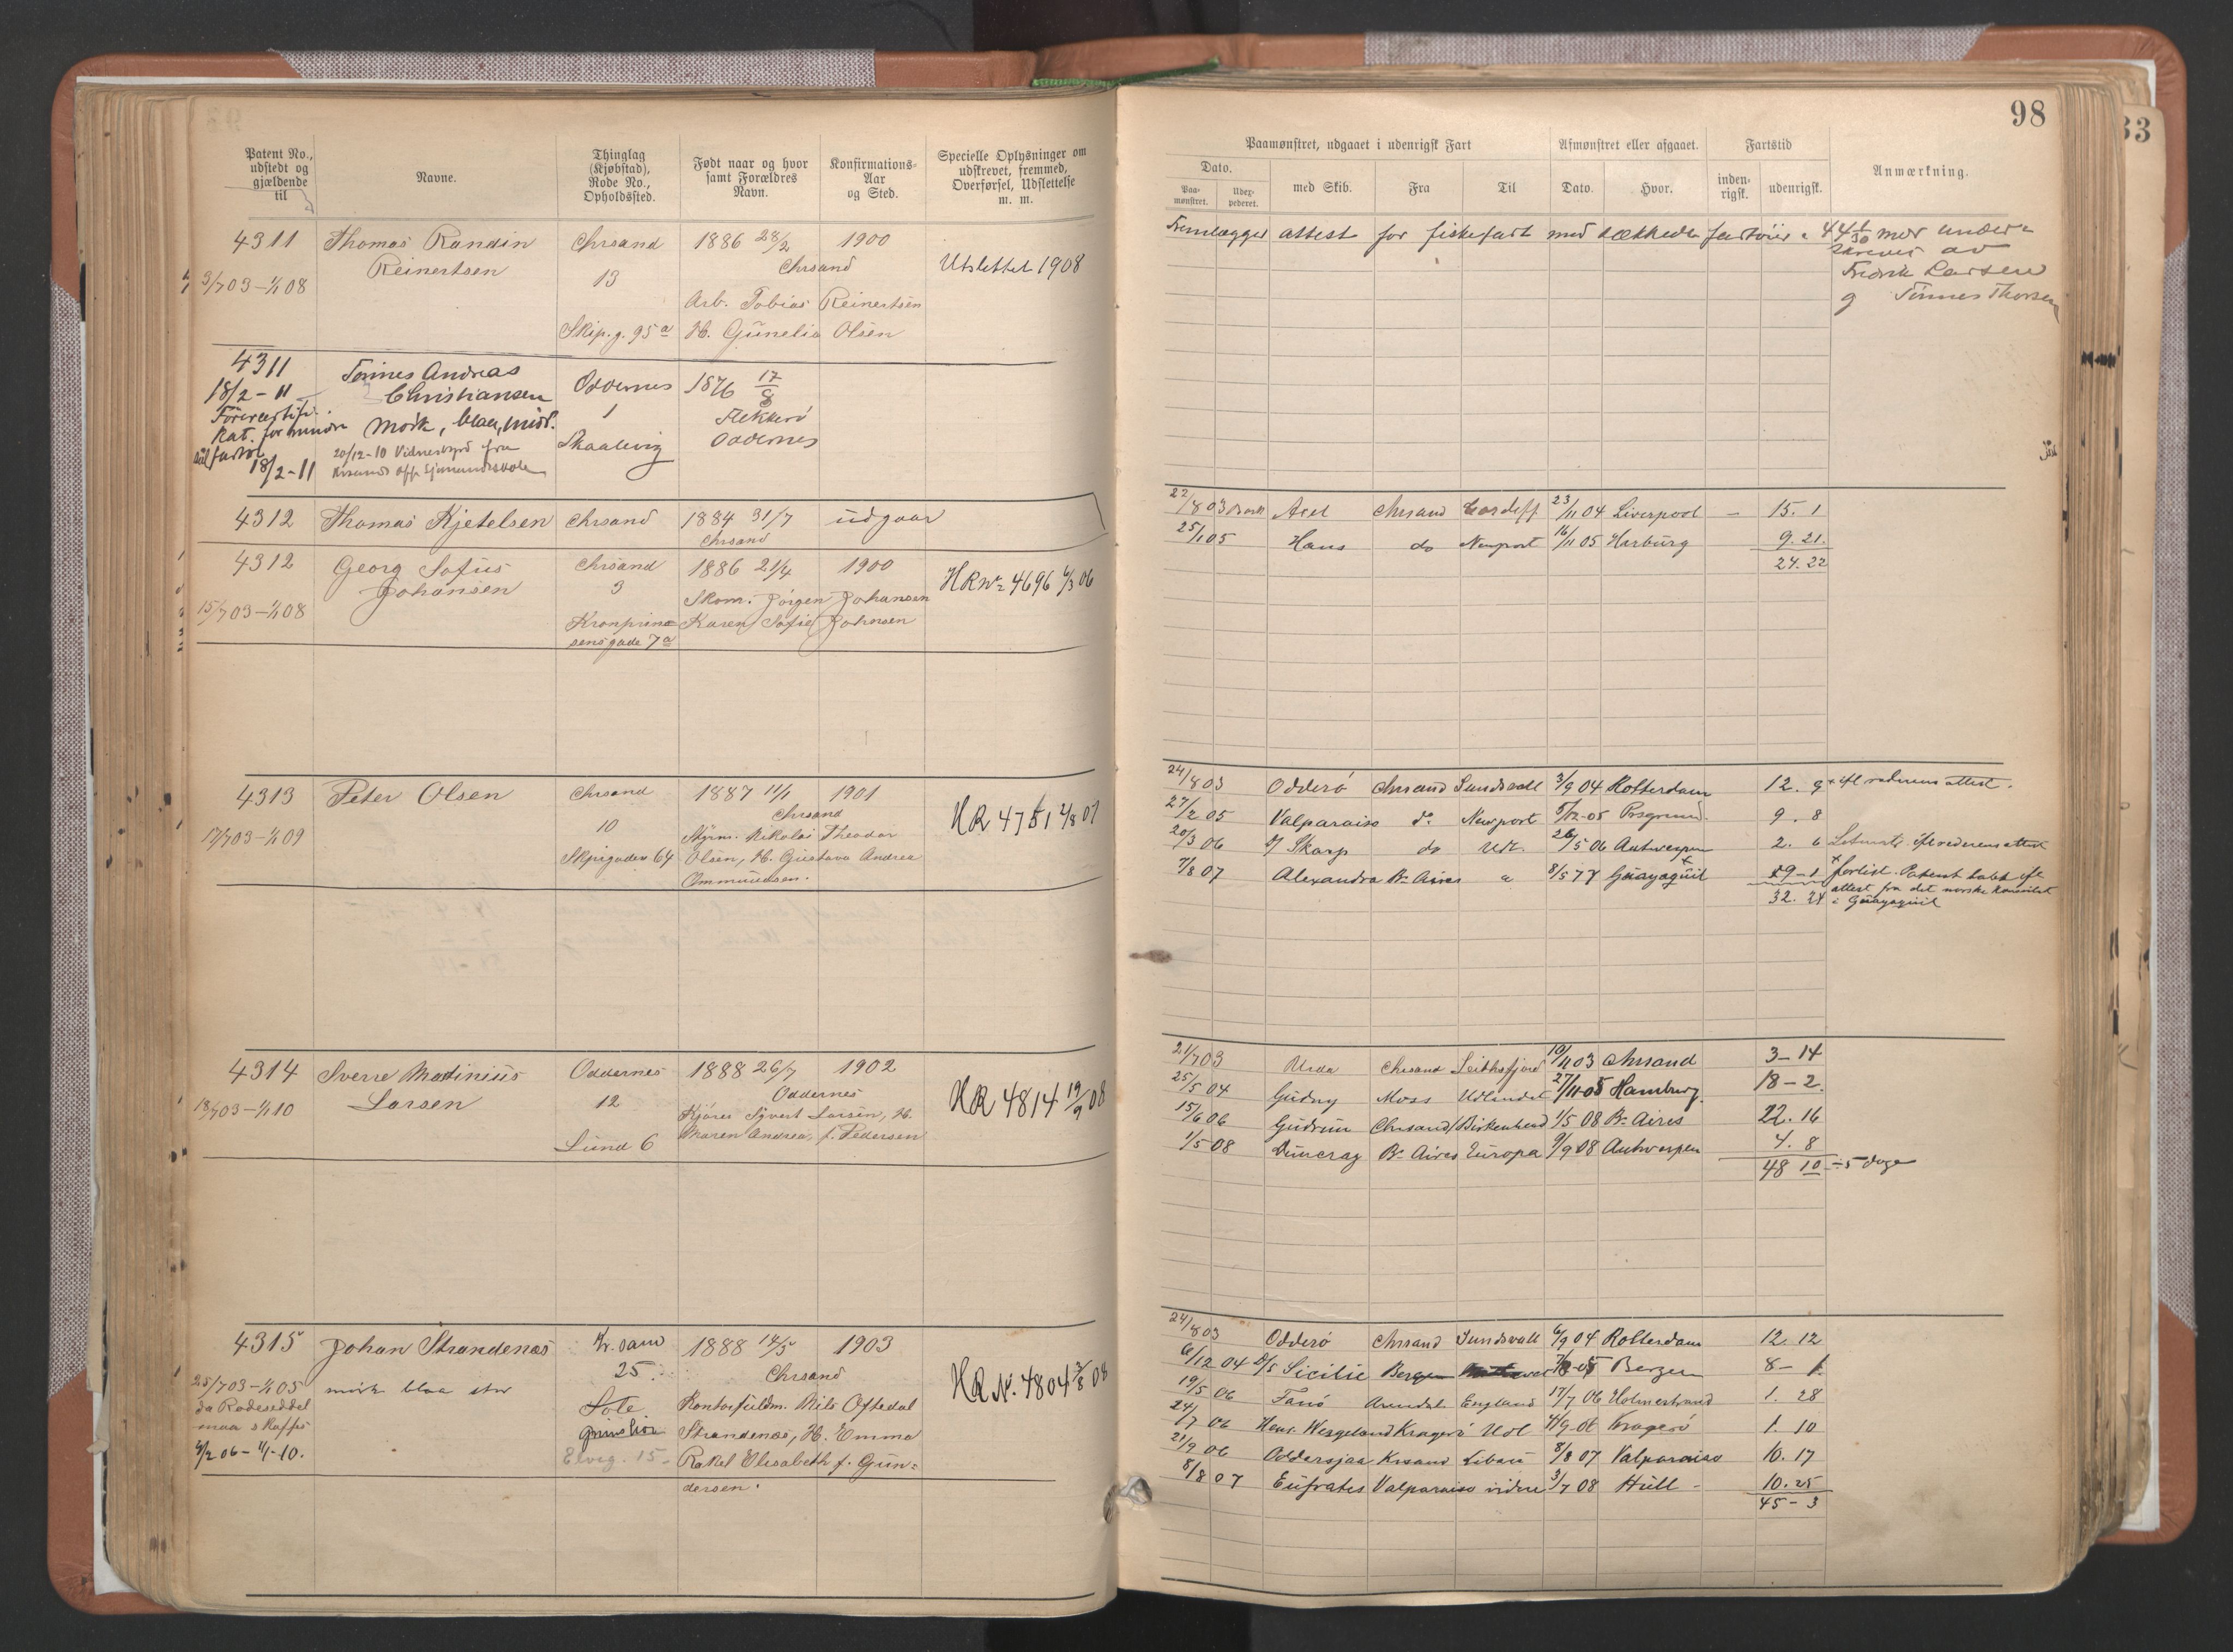 98
33
Patent No., udstedt og gjældende til
Navne.
Thinglag (Kjøbstad), Rode No., Opholdssted.
Født naar og hvor samt Forældres Navn.
Konfirmations-Aar og Sted.
Specielle Oplysninger om udskrevet, fremmed, Overførsel, Udslettelse m. m.
Paamønstret, udgaaet i udenrigsk Fart
Afmønstret eller afgaaet.
Fartstid
Anmærkning.
Dato.
Paamønstret.
Udexpederet.
med Skib.
Fra
Til
Dato.
Hvor.
indenrigsk.
udenrigsk.
4311 Thomas Randin Chrsand 1886 28/2 1900
Reinertsen 13 Chrsand Utslettet 1908
3/7 03-1/1 08
Arb. Tobias Reinertsen
Skip.g. 95a H. Gunelia Olsen
Fremlægger attest for fiskefart med dækkede fartøier 44 1/30 mdr under-
skrevet av
Fredrik Larsen
g Tönnes Thorsen
4311 Tönnes Andreas Oddernes 1876 17/8
18/2-11 Christiansen 1 Flekkerö
mörk, blaa, mid. Skaalevig Oddernes
20/12-10 Vidnesbyrd fra
18/2-11
4312 Thomas Kjetelsen Chrsand 1884 31/7 udgaar
Chrsand
4312 Georg Sofus Chrsand 1886 21/4 1900
Johansen 3 HR No 4696 6/3 06
15/7 03-1/1 08 Skom. Jörgen Johansen
Kronprinsensgade 7a Karen Sofie Johnsen
22/8 03 Axel Chrsand Cardiff 23/11 04 Liverpool - 15. 1
25/1 05 Hans do Newport 16/11 05 Harburg 9. 21.
24. 22
4313 Peter Olsen Chrsand 1887 11/1 1901
17/7 03-1/1 09 10 Chrsand HR 4751 2/8 07
Styrm. Nikolai Theodor
Skipgaden 64 Olsen, H. Gustava Andrea
Ommundsen.
24/8 03 Odderö Chrsand Sundsvall 3/9 04 Rotterdam 12. 9 x ifl rederens attest.
27/2 05 Valparaiso do Newport 5/12-05 Porsgrund. 9. 8
20/3 06 Skarp do Udl. 26/5 06 Antwerpen 2. 6 ifl rederens attest
7/8 07 Alexandra B. Aires 8/5 07 Guayaquil x forlist. Patent tabt ifl
attest fra det norske konsulat
32. 24 i Guayaquil
4314 Sverre Matinius Oddernes 1888 26/7 1902
18/7 03-1/1 10 Larsen 12 Oddernes HR 4814 19/9 08
Kjörer Syvert Larsen, H.
Maren Andrea, f. Pedersen
Lund 6
21/7 03 Urda Chrsand 19/11 03 Chrsand 3-14
25/5 04 Gudny Moss Udlandet 27/11-05 Hamburg. 18-2.
15/6 06 Gudrun Chrsand Birkenhead 1/5 08 B. Aires 22. 16
1/5 08 Duncrag B. Aires Europa 9/9 08 Antwerpen 4. 8
48 10 ÷ 5 dage
4315 Johan Strandenæs Kr.sand 1888 14/5 1903
25/7 03-1/1 05 mörk blaa stor 25. Chrsand HR N. 4804 3/8 08
da Rodeseddel
maa skaffes
6/2 06-1/1-10.
Kontorfuldm. Nils Oftedal
Strandenæs, H. Emma
Elveg. 15- Rakel Elisabeth f. Gun-
dersen.
24/8 03 Odderö Chrsand Sundsvall 6/9 04 Rotterdam 12. 12
6/12 04 D/S Sicilie Bergen Bergen 8- 1.
19/5 06 Fanö Arendal England 17/7 06 Holmestrand 1. 28
24/7 06 Henr. Wergeland Kragerö Udl Kragerö 1. 10
21/9 06 Oddersjaa Krsand Libau 8/8 07 Valparaiso 10. 17
8/8 07 Eufrates Valparaiso videre 3/7 08 Hull - 10. 25
45-3